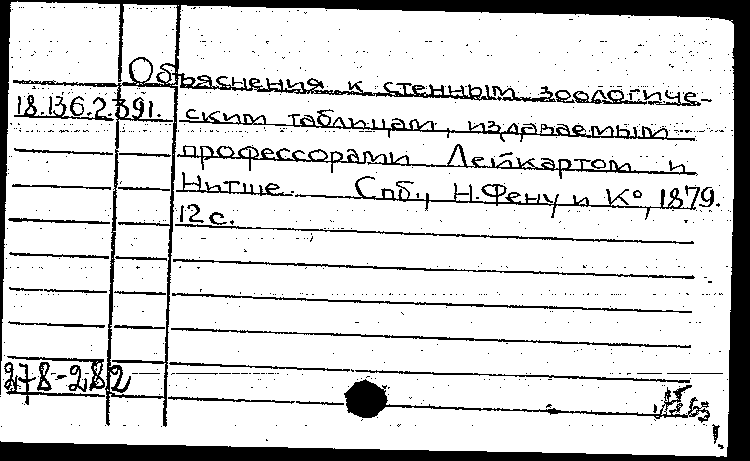 Объяснения к стенным зоологиче-
18.136.2.391. ским таблицам, издаваемым
профессорами Лейкартом и
Нитше. Спб., Н. Фену и К°, 1879.
12 с.
278-282